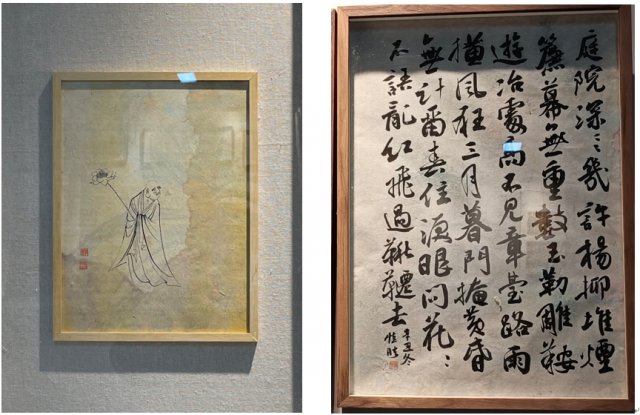 庭院深〻幾許楊柳堆煙
簾幕無重數玉勒雕鞍
遊冶處高不見章臺路雨
橫風狂三月暮門掩黃昏
無計留春住淚眼問花〻
不語亂紅飛過鞦韆去
辛丑冬